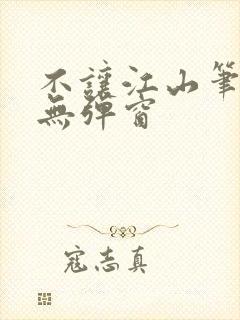 不讓江山筆
無彈窗
寇志真